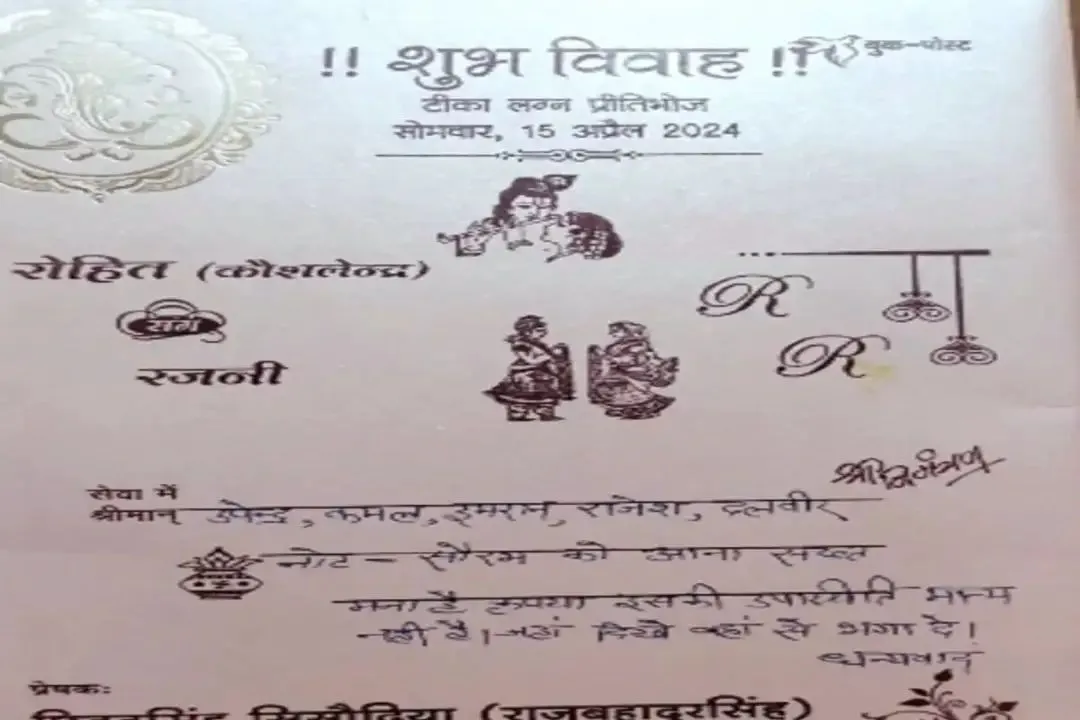 !! शुभ विवाह !!
बुक-पोस्ट
टीका लग्न प्रीतिभोज
सोमवार, 15 अप्रैल 2024
रोहित (कौशलेन्द्र)
संग
रजनी
R
R
सेवा में
श्रीमान् उपेन्द्र, कमल, इमरान, राजेश, दलवीर
नोट - सौरभ को आना सख्त
मना है कृपया इसकी उपस्थिति मान्य
नही है। जहां दिखे वहां से भगा दे।
धन्यवाद
प्रेषकः
सिसौदिया (राजबहादुरसिंह)